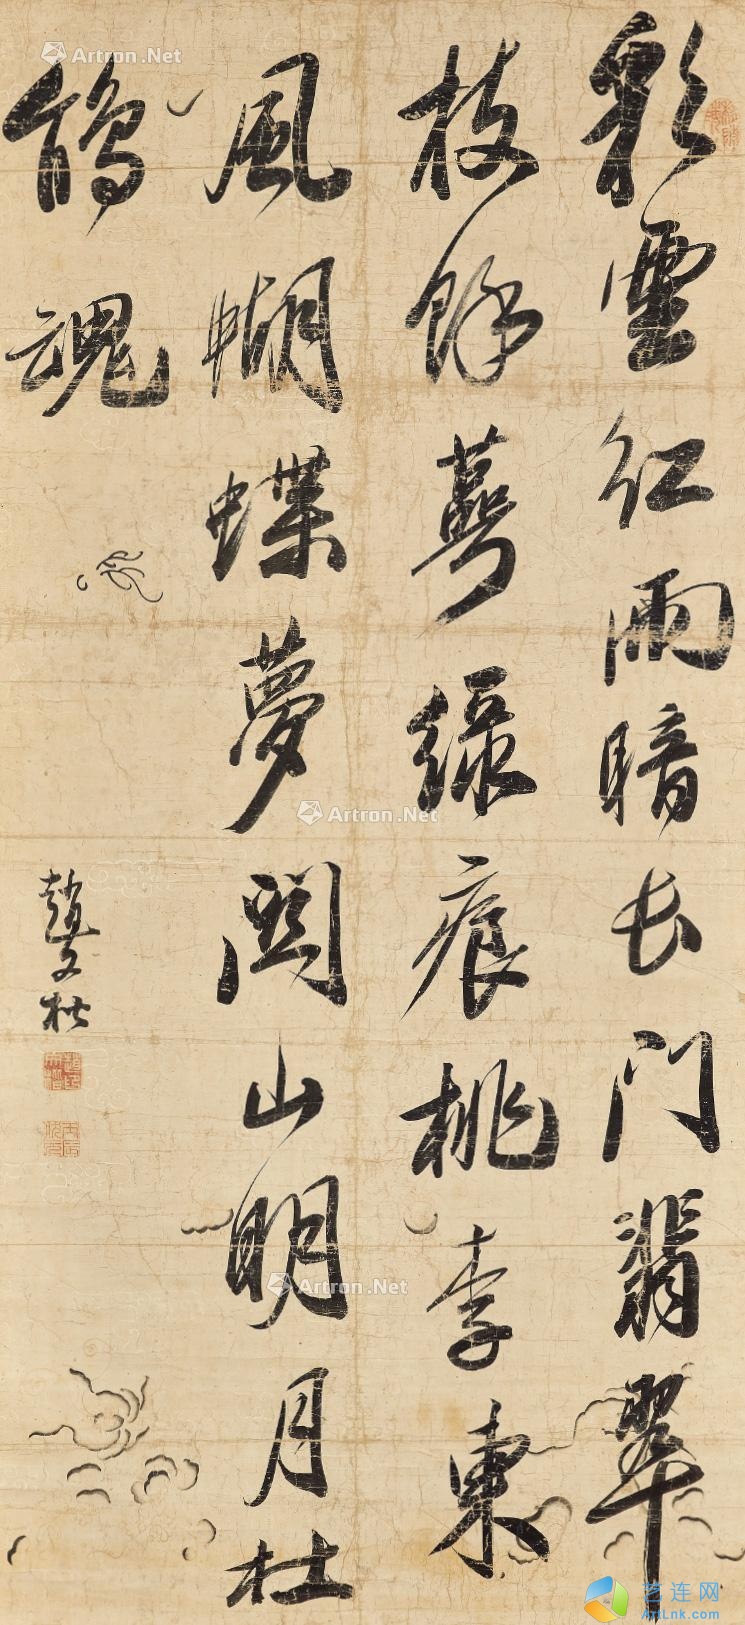 彩雲紅雨暗長門翡翠
枝餘萼綠痕桃李東
風蝴蝶夢關山明月杜
鵑魂
趙文楷
Artron.Net
Artron.Net
Artron.Net
艺连网
ArtLnk.com